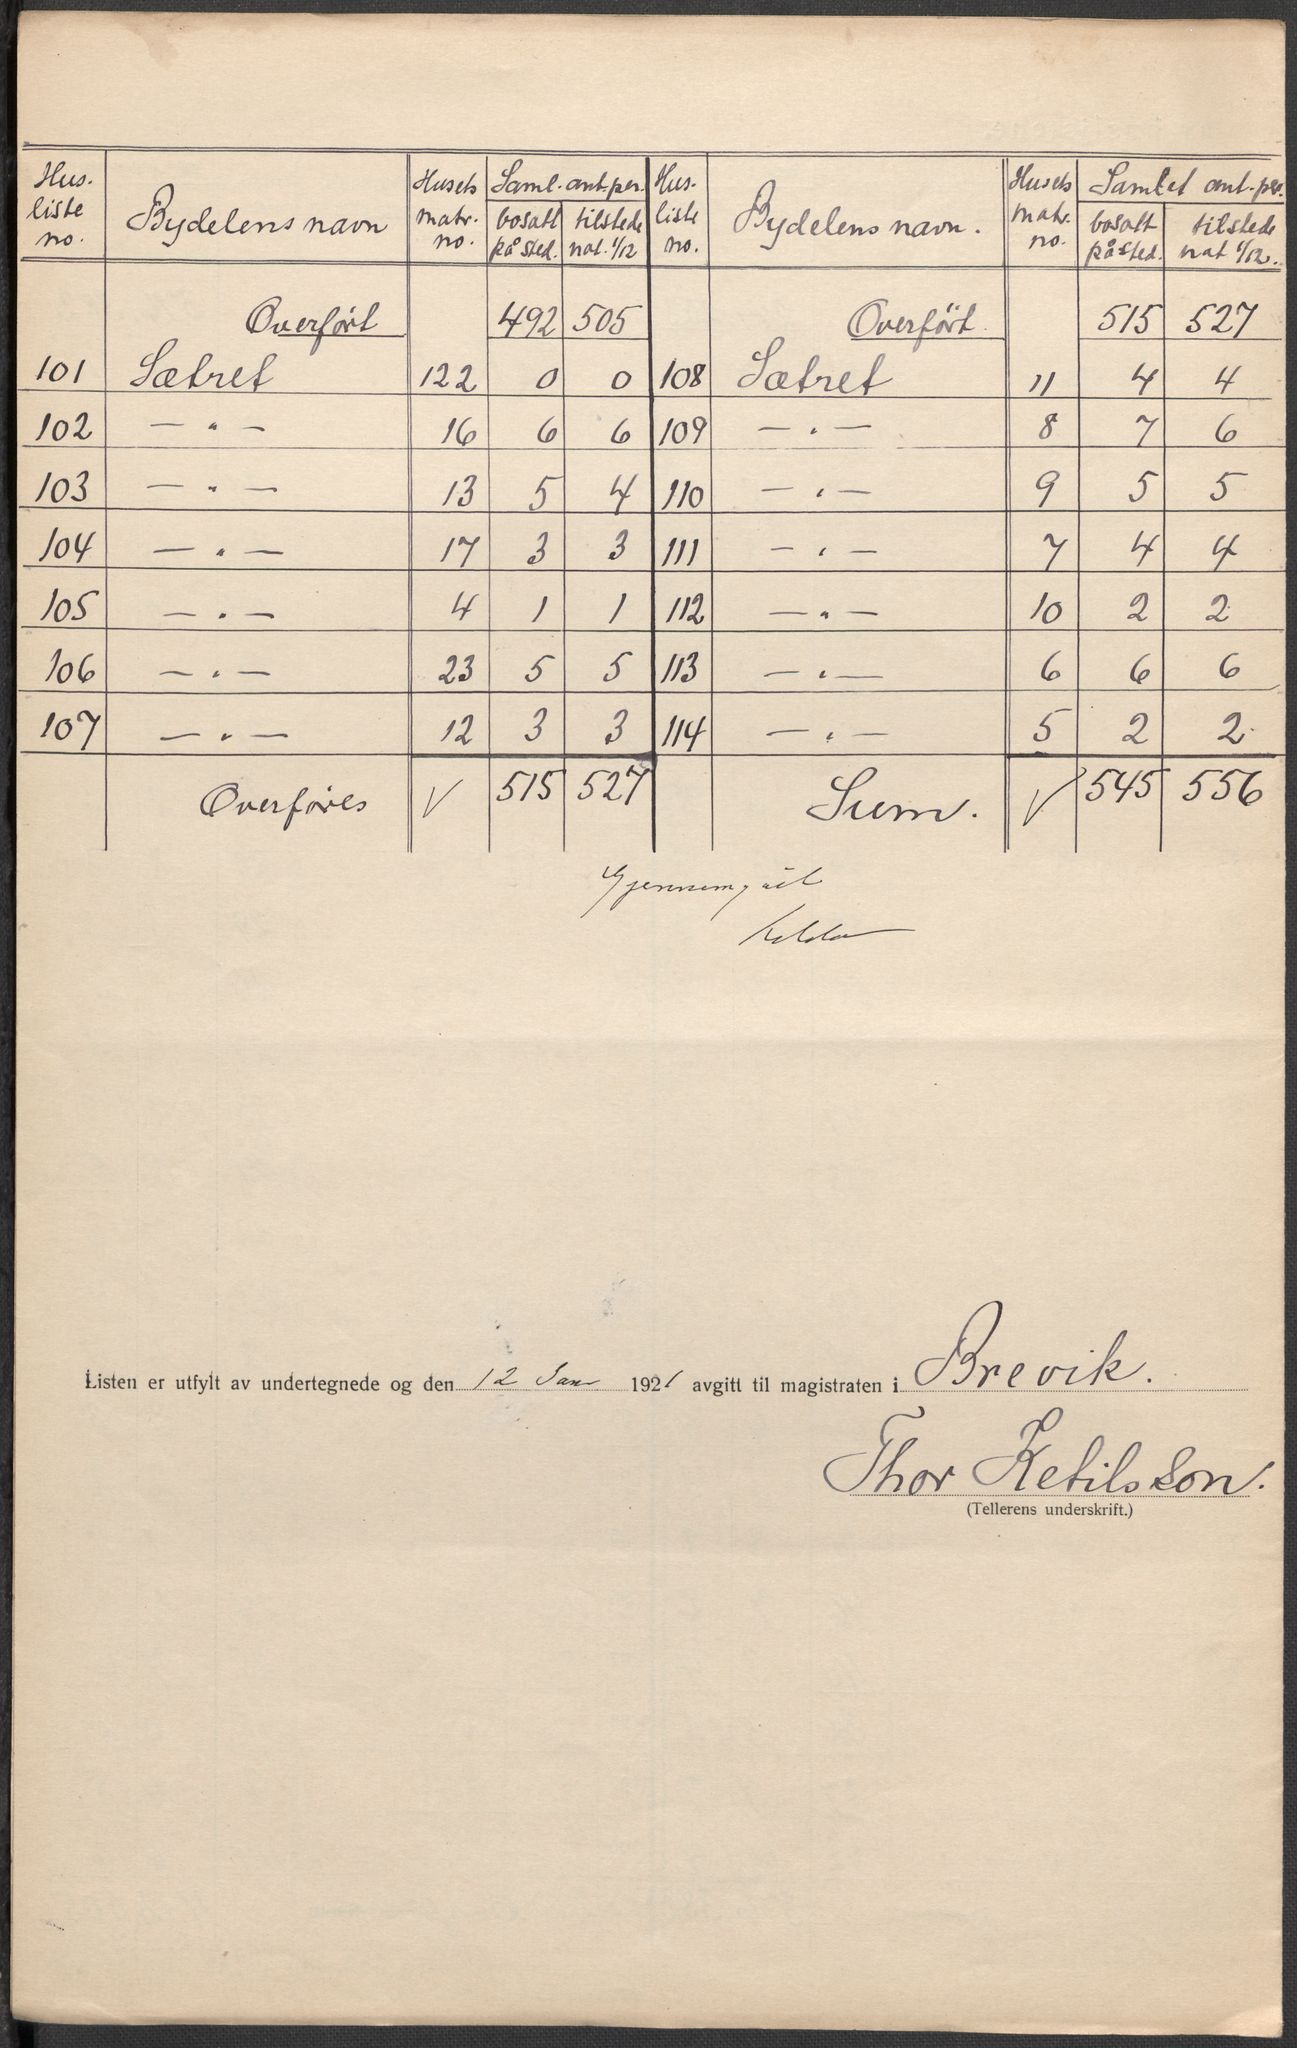 Hus- liste no. | Bydelens navn | Husets matr. no. | Saml. ant. per. bosatt på sted. | tilstede nat. 1/12 | Hus- liste no. | Bydelens navn. | Husets matr. no. | Samlet ant. per. bosatt på sted. | tilstede nat 1/12.
Overført | 492 | 505 | Overført. | 515 | 527
101 | Sætret | 122 | 0 | 0 | 108 | Sætret | 11 | 4 | 4
102 | — " — | 16 | 6 | 6 | 109 | — " — | 8 | 7 | 6
103 | — " — | 13 | 5 | 4 | 110 | — " — | 9 | 5 | 5
104 | — " — | 17 | 3 | 3 | 111 | — " — | 7 | 4 | 4
105 | — " — | 4 | 1 | 1 | 112 | — " — | 10 | 2 | 2
106 | — " — | 23 | 5 | 5 | 113 | — " — | 6 | 6 | 6
107 | — " — | 12 | 3 | 3 | 114 | — " — | 5 | 2 | 2
Overføres | √ | 515 | 527 | Sum. | √ | 545 | 556
Gjennemgåt
Listen er utfylt av undertegnede og den 12 Jan 1921 avgitt til magistraten i Brevik.
Thor Ketilsson.
(Tellerens underskrift.)